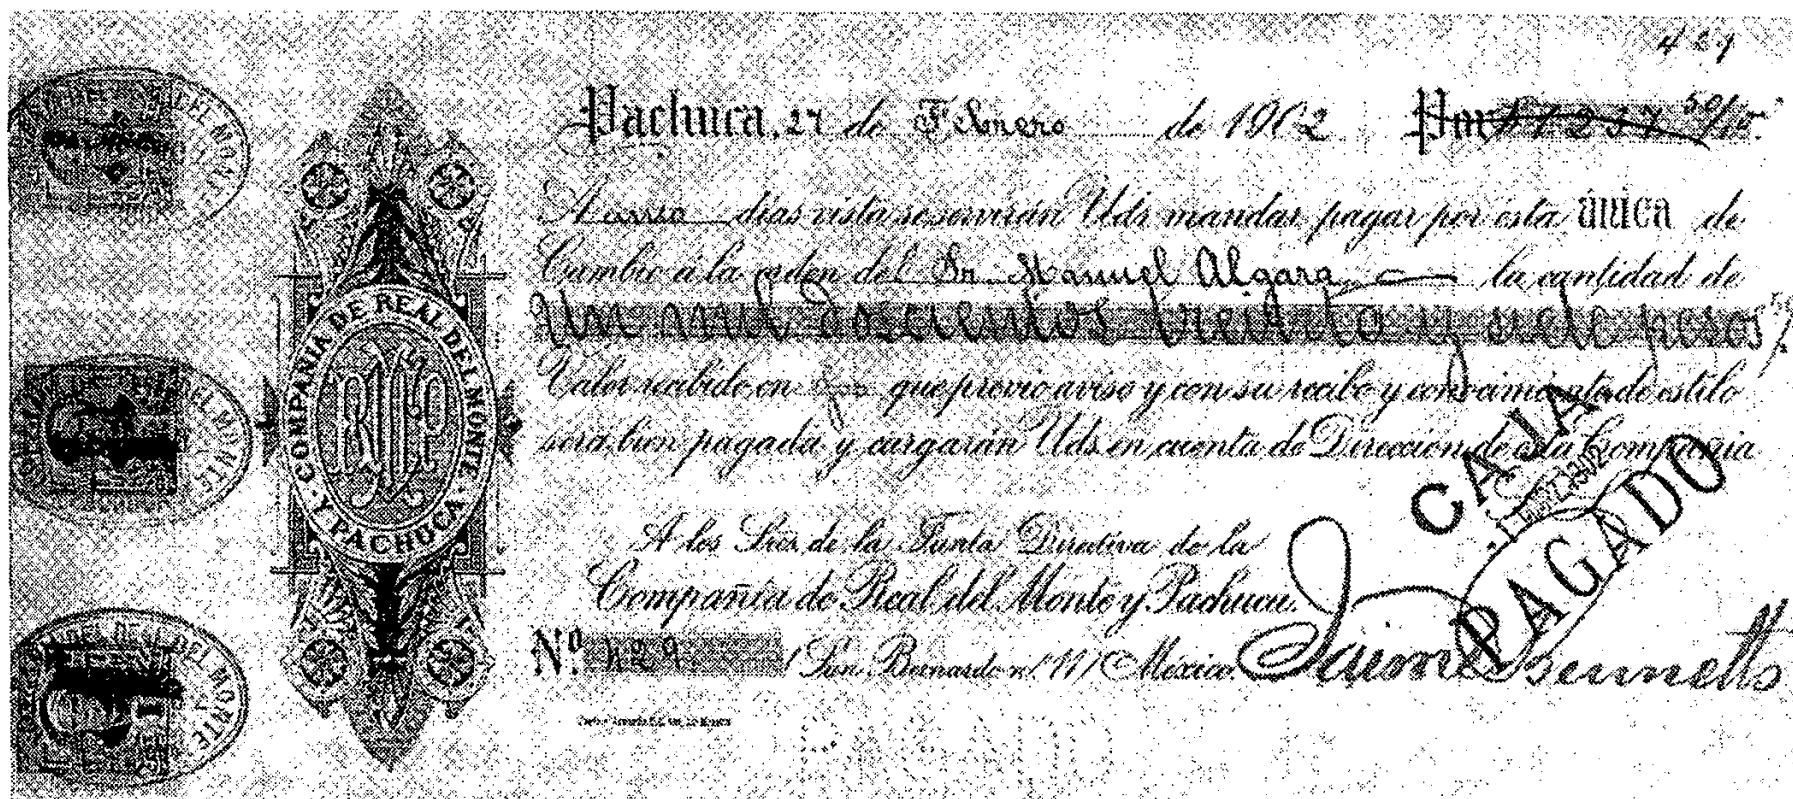 429
Pachuca, 27 de Febrero de 1902 Por $1237 50/100.
A cinco días vista se servirán Uds mandar pagar por esta única de
Cambio á la orden del Sr. Manuel Algara la cantidad de
Un mil doscientos treinta y siete pesos 50/
Valor recibido en que previo aviso y con su recibo y conocimiento de estilo
será bien pagada y cargarán Uds. en cuenta de Dirección de esta Compañia
A los Sres. de la Junta Directiva de la
Compañía de Real del Monte y Pachuca.
No. 429 San Bernardo nº 11 México.
Jaime Bennetts
CAJA
1902
PAGADO
COMPAÑIA DE REAL DEL MONTE Y PACHUCA
PAGADO